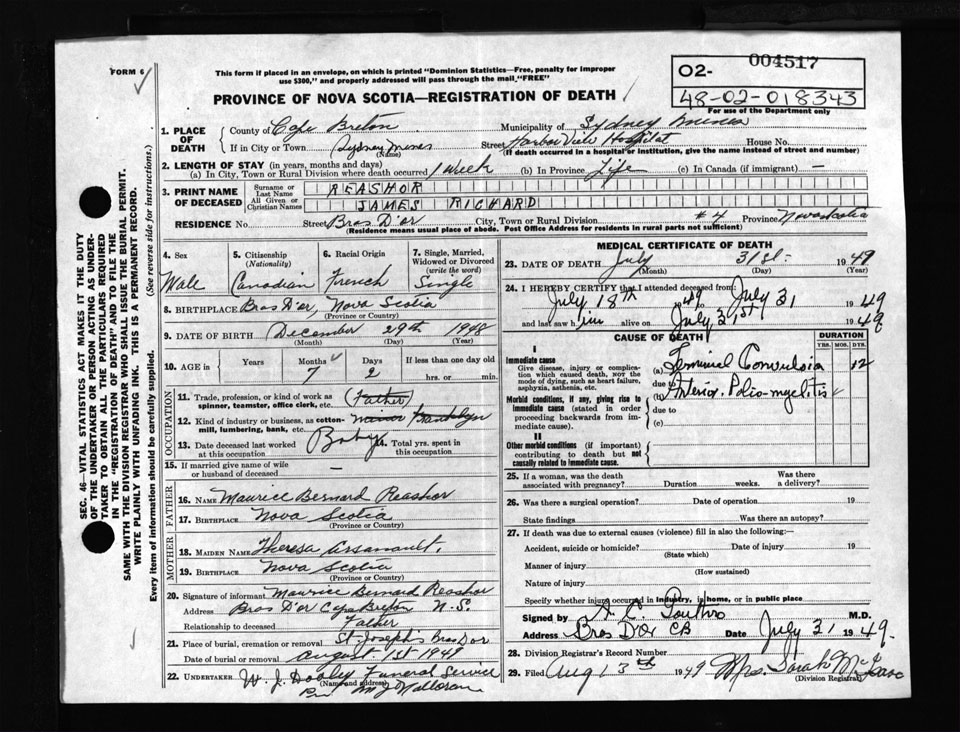 FORM 6
This form if placed in an envelope, on which is printed "Dominion Statistics—Free, penalty for improper
use $300," and properly addressed will pass through the mail, "FREE"
PROVINCE OF NOVA SCOTIA—REGISTRATION OF DEATH
004517
O2-
48-02-018343
For use of the Department only
1. PLACE OF DEATH
County of Cape Breton Municipality of Sydney Mines
If in City or Town Sydney Mines (Name) Street Harbor View Hospital House No.
(If death occurred in a hospital or institution, give the name instead of street and number)
2. LENGTH OF STAY (in years, months and days)
(a) In City, Town or Rural Division where death occurred 1 Week (b) In Province Life (c) In Canada (if immigrant) —
3. PRINT NAME OF DECEASED
Surname or Last Name REASHOR
All Given or Christian Names JAMES RICHARD
RESIDENCE No. Street Bras D'or City, Town or Rural Division #4 Province Nova Scotia
(Residence means usual place of abode. Post Office Address for residents in rural parts not sufficient)
4. Sex
Male
5. Citizenship (Nationality)
Canadian
6. Racial Origin
French
7. Single, Married, Widowed or Divorced (write the word)
Single
8. BIRTHPLACE Bras D'or, Nova Scotia
(Province or Country)
9. DATE OF BIRTH December 29th 1948
(Month) (Day) (Year)
10. AGE in Years Months Days If less than one day old
7 2 hrs. or min.
OCCUPATION
11. Trade, profession or kind of work as spinner, teamster, office clerk, etc. (Father)
12. Kind of industry or business, as cotton-mill, lumbering, bank, etc.
13. Date deceased last worked at this occupation Baby
14. Total yrs. spent in this occupation
15. If married give name of wife or husband of deceased —
FATHER
16. NAME Maurice Bernard Reashor
17. BIRTHPLACE Nova Scotia
(Province or Country)
MOTHER
18. MAIDEN NAME Theresa Arsanault.
19. BIRTHPLACE Nova Scotia
(Province or Country)
20. Signature of informant Maurice Bernard Reashor
Address Bras D'or Cape Breton N-S.
Relationship to deceased Father
21. Place of burial, cremation or removal St-Joseph's Bras D'or
Date of burial or removal August 1st 1949
22. UNDERTAKER W. J. Funeral Service
(Name and address)
Per M J
MEDICAL CERTIFICATE OF DEATH
23. DATE OF DEATH July 31st- 1949
(Month) (Day) (Year)
24. I HEREBY CERTIFY that I attended deceased from:
July 18th 1949 to July 31 1949
and last saw him alive on July 31st 1949
CAUSE OF DEATH
DURATION
YRS. MOS. DYS.
I
Immediate cause
Give disease, injury or complication which caused death, NOT the mode of dying, such as heart failure, asphyxia, asthenia, etc.
(a) Terminal Convulsion 12
due to
Morbid conditions, if any, giving rise to immediate cause (stated in order proceeding backwards from immediate cause).
(b) Anterior Polio-myelitis
due to
(c)
II
Other morbid conditions (if important) contributing to death but not causally related to immediate cause.
25. If a woman, was the death associated with pregnancy? Duration weeks. Was there a delivery?
26. Was there a surgical operation? Date of operation 19
State findings Was there an autopsy?
27. If death was due to external causes (violence) fill in also the following:—
Accident, suicide or homicide? Date of injury 19
(State which)
Manner of injury
(How sustained)
Nature of injury
Specify whether injury occurred in industry, in home, or in public place
Signed by M.D.
Address Bras D'Or CB Date July 31 1949.
28. Division Registrar's Record Number
29. Filed Aug 13th 1949 Mrs. Sarah
(Division Registrar)
SEC. 46—VITAL STATISTICS ACT MAKES IT THE DUTY
OF THE UNDERTAKER OR PERSON ACTING AS UNDER-
TAKER TO OBTAIN ALL THE PARTICULARS REQUIRED
IN THE "REGISTRATION OF DEATH" AND TO FILE THE
SAME WITH THE DIVISION REGISTRAR WHO SHALL ISSUE THE BURIAL PERMIT.
WRITE PLAINLY WITH UNFADING INK. THIS IS A PERMANENT RECORD.
Every item of information should be carefully supplied. (See reverse side for instructions.)